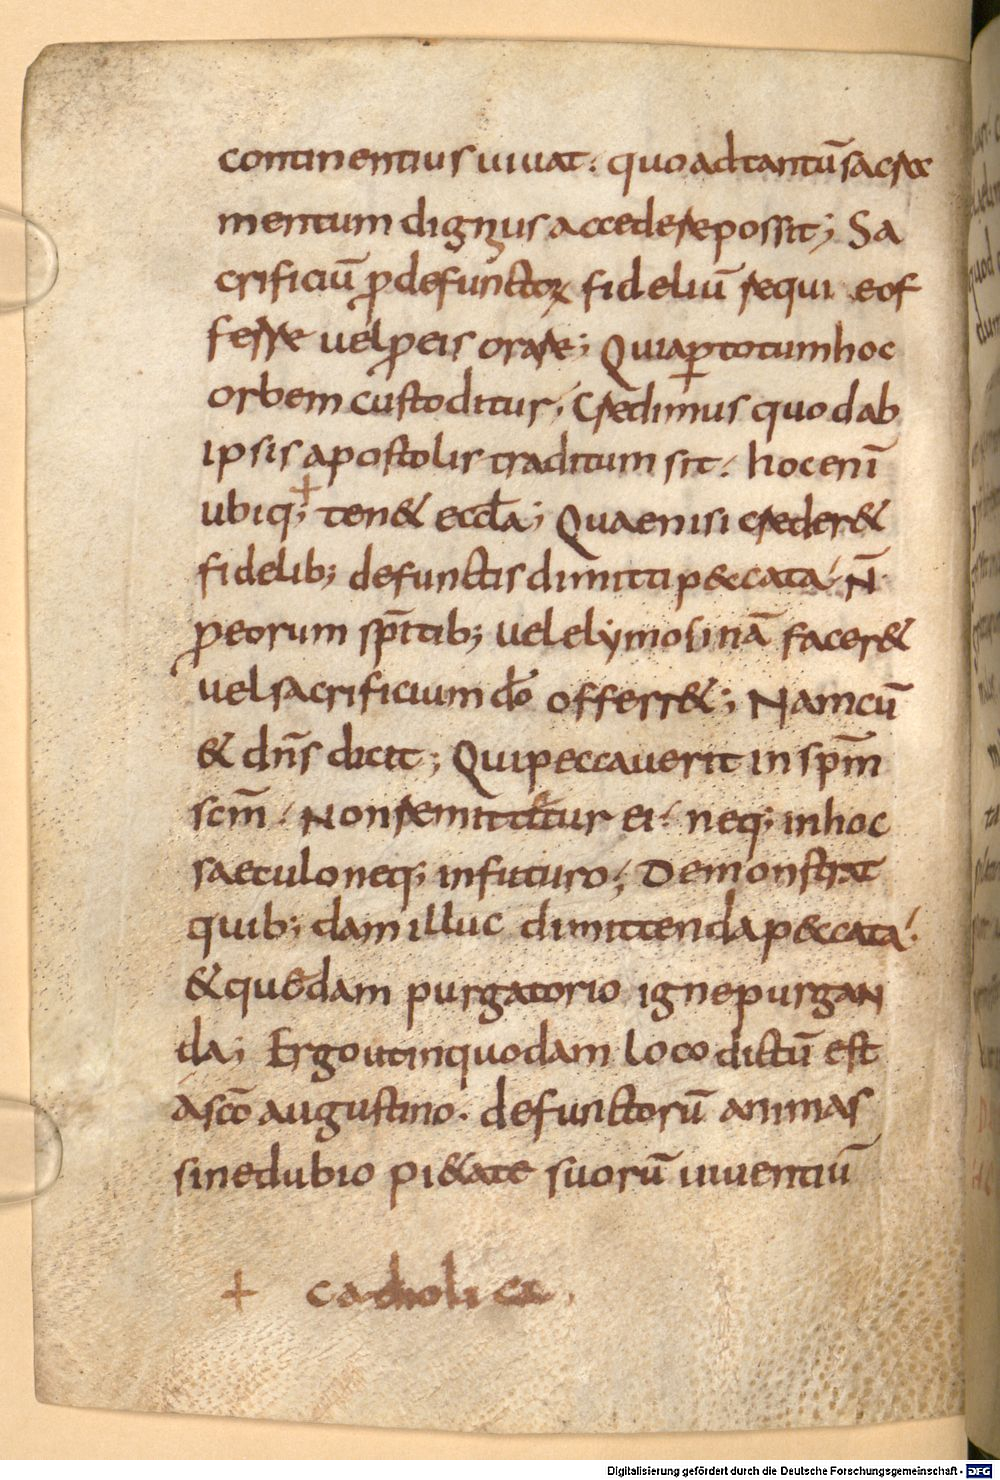 continentius uiuat. quo ad tantū sacra
mentum dignus accedere possit; Sa
crificiū ꝓ defunctoꝝ fideliū requi eof
ferre uel ꝓ eis orare; Quia ꝑ totum hoc
orbem custoditur; Credimus quod ab
ipsis apostolis traditum sit. hoc enī
ubiq; + ten& eccła; Quae nisi creder&
fidelib; defunctis dimitti p&ccata. N̄
ꝓ eorum sp̄itib; uel elymosinā facer&
uel sacrificium dō offerr&; Nam cū
& dn̄s dicit; Qui peccauerit in sp̄m
scm̄. Non remittetur ei. neq; in hoc
saeculo neq; in futuro; Demonstrat
quib; dam illuc dimittenda p&ccata.
& quędam purgatorio igne purgan
da; Ergo ut in quodam loco dictū est
a scō augustino. defunctorū animas
sine dubio pi&ate suorū uiuentiū
+ catholica.
Digitalisierung gefördert durch die Deutsche Forschungsgemeinschaft - DFG